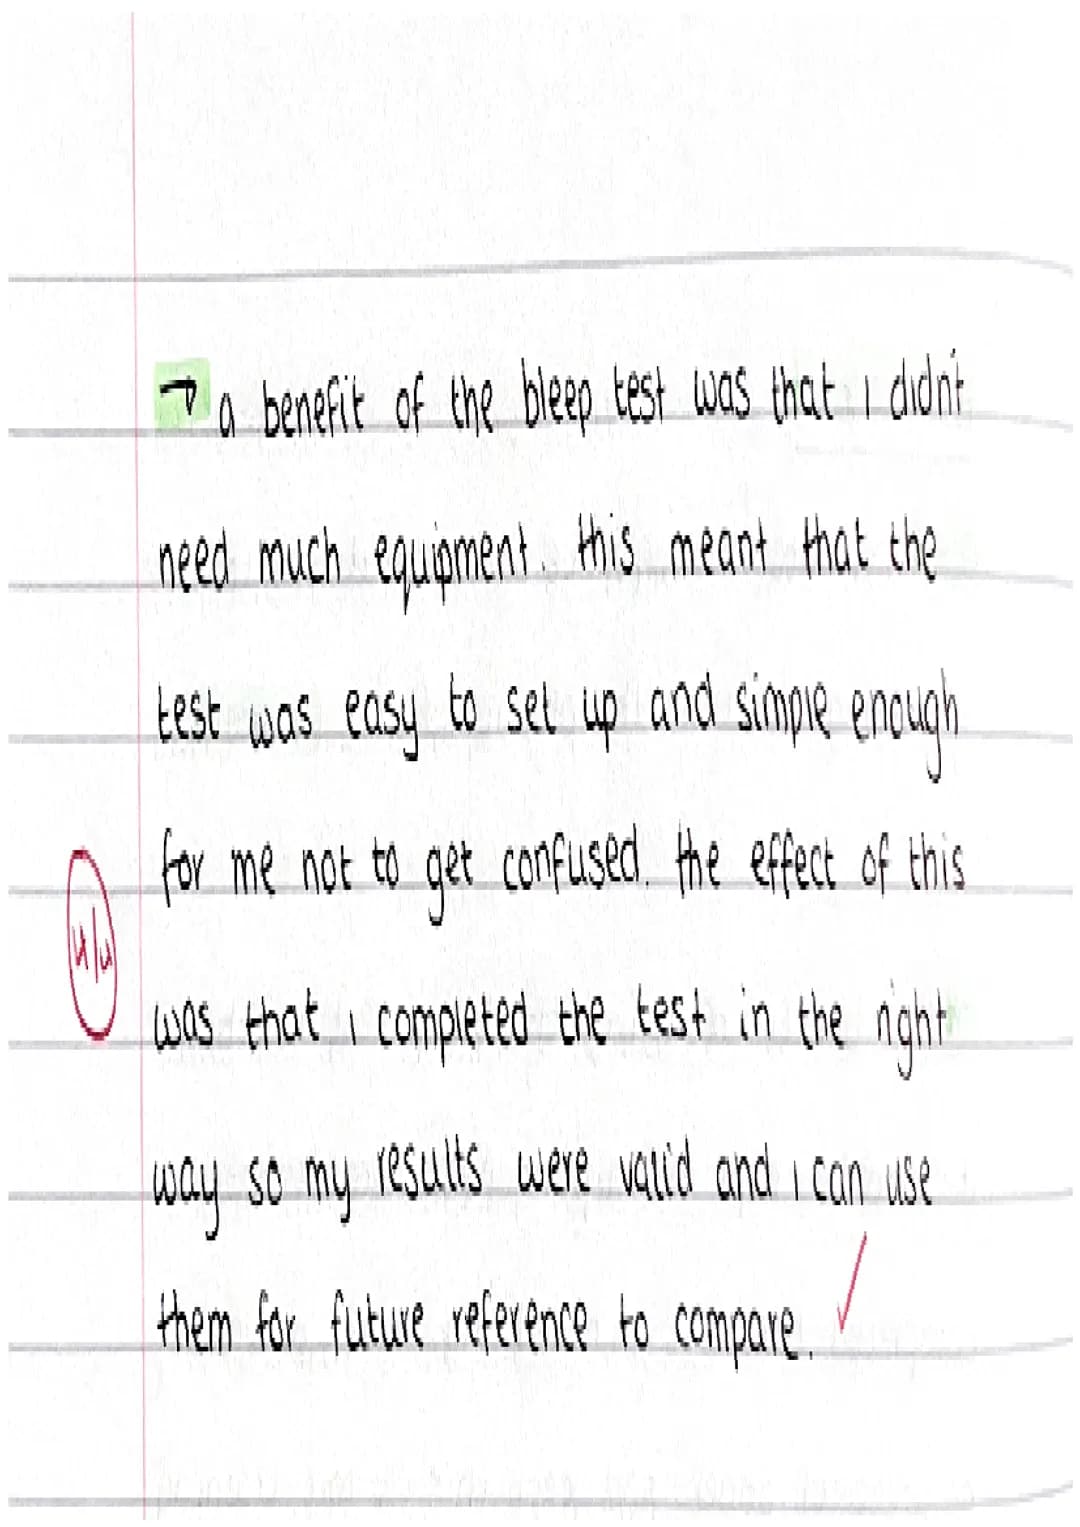 → a benefit of the bleep test was that i didn't
need much equipment. this meant that the
test was easy to set up and simple enough
for me not to get confused. the effect of this
4/4
was that i completed the test in the right
way so my results were valid and i can use
them for future reference to compare.